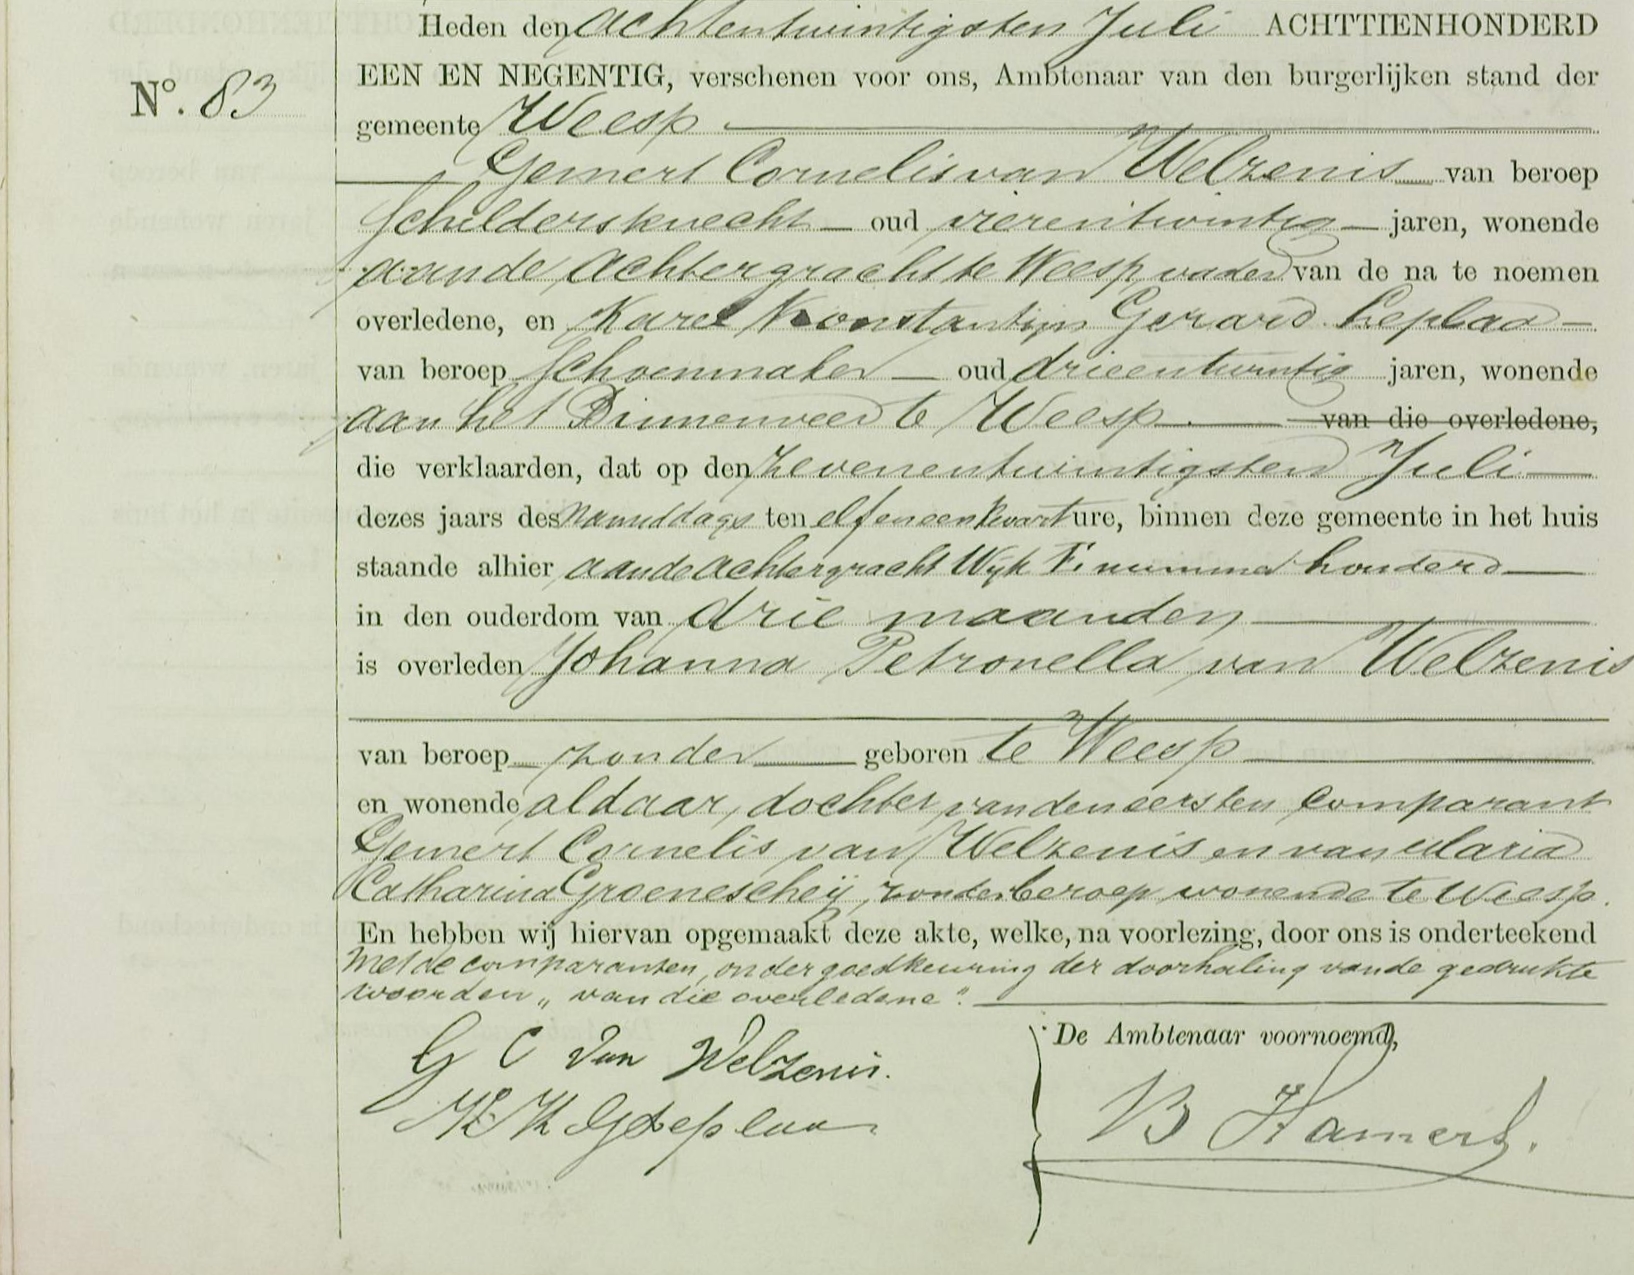 Heden den achtentwintigsten Juli ACHTTIENHONDERD
No. 83
EEN EN NEGENTIG, verschenen voor ons, Ambtenaar van den burgerlijken stand der
gemeente Weesp
Gemert Cornelis van Welzenis van beroep
Schildersknecht oud vierentwintig jaren, wonende
aan de Achtergracht te Weesp vader van de na te noemen
overledene, en Karel Konstantijn Gerard Leplaa
van beroep Schoenmaker oud drieentwintig jaren, wonende
aan het Binnenveer te Weesp van die overledene,
die verklaarden, dat op den zevenentwintigsten Juli
dezes jaars des namiddags ten elf en een kwart ure, binnen deze gemeente in het huis
staande alhier aan de Achtergracht Wijk F. nummer honderd
in den ouderdom van drie maanden
is overleden Johanna Petronella van Welzenis
van beroep zonder geboren te Weesp
en wonende aldaar, dochter van den eersten comparant
Gemert Cornelis van Welzenis en van Maria
Catharina Groenescheij, zonder beroep, wonende te Weesp.
En hebben wij hiervan opgemaakt deze akte, welke, na voorlezing, door ons is onderteekend
met de comparanten, onder goedkeuring der doorhaling van de gedrukte
woorden „van die overledene".
De Ambtenaar voornoemd,
G C van Welzenis.
K K G Leplaa
B Hamers.